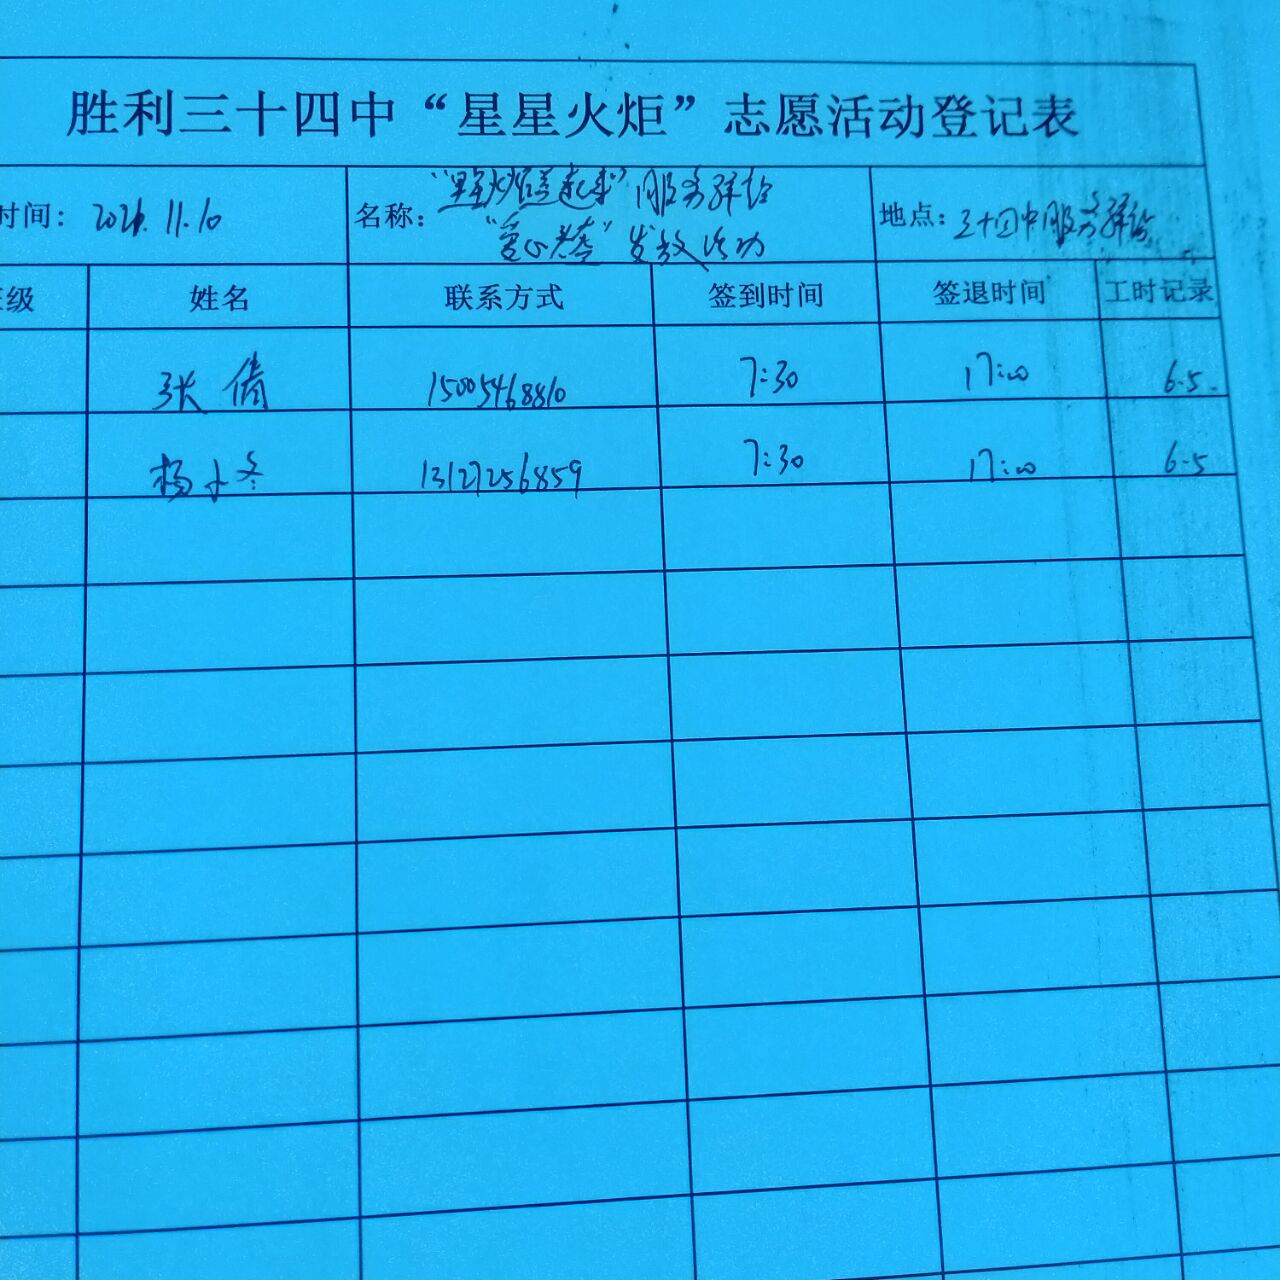 胜利三十四中“星星火炬”志愿活动登记表
时间: 11.10 名称: 服务驿站 地点: 三十四中服务驿站
“爱心 ”发放活动
级 姓名 联系方式 签到时间 签退时间 工时记录
张倩 15005468810 7:30 17:00 6.5
杨小冬 13127256859 7:30 17:00 6.5